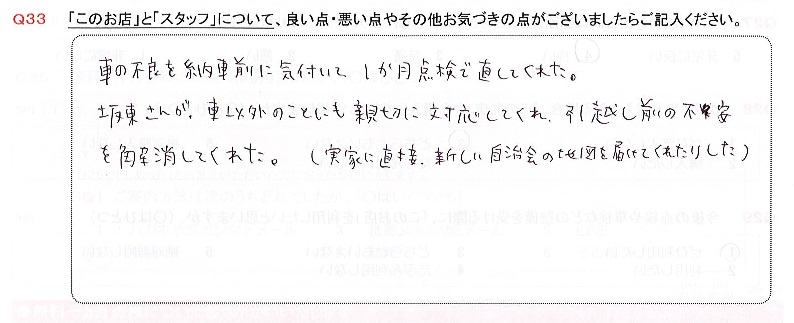 Q33 「このお店」と「スタッフ」について、良い点・悪い点やその他お気づきの点がございましたらご記入ください。
車の不良を納車前に気付いて1か月点検で直してくれた。
坂東さんが、車以外のことにも親切に対応してくれ、引越し前の不安
を解消してくれた。(実家に直接、新しい自治会の地図を届けてくれたりした)